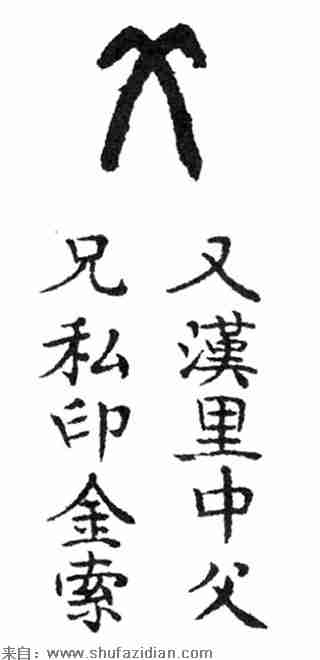 父
又漢里中父
兄私印金索
来自：www.shufazidian.com